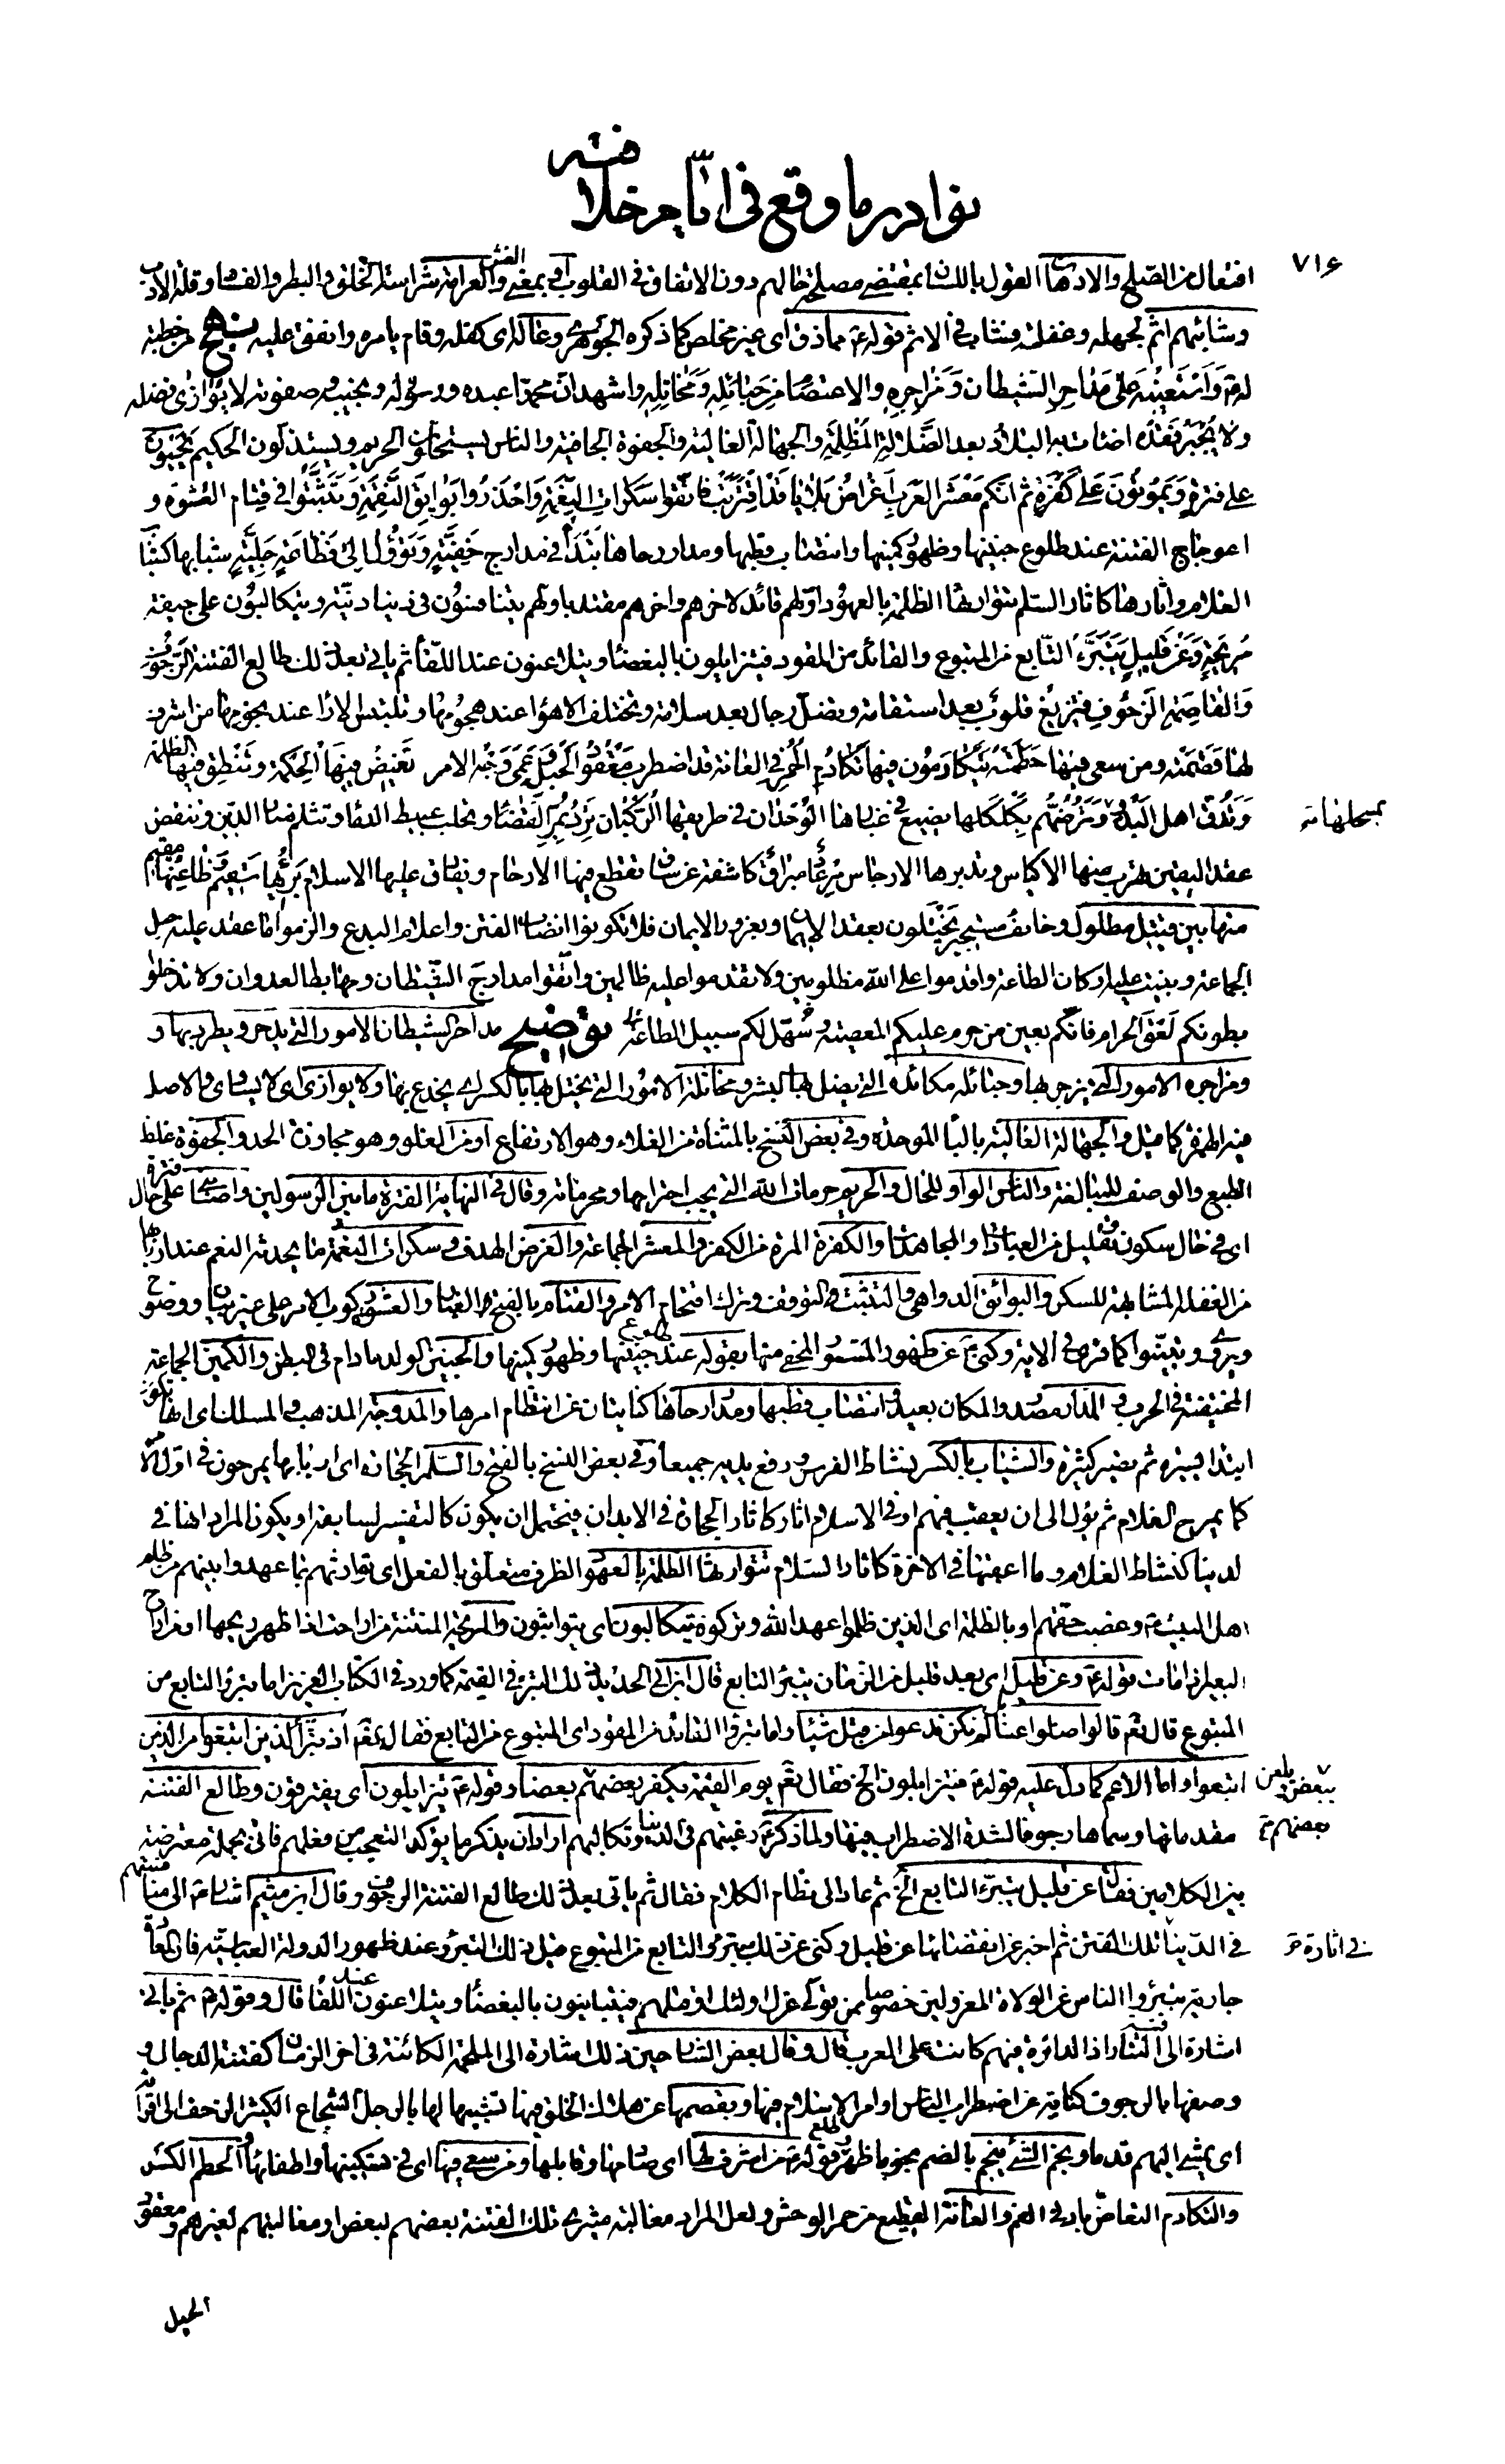 نوادر ما وقع في ايّام خلافته
٧١۶
افتعال من الصّلح والادهان القول باللسان بمقتضى مصلحة حالهم دون الاتفاق في القلوب او بمعنى الغش والعرامة شراسة الخلق والبطر والفساد وقلة الادب
وشائبهم اثم لجهله وغفلته فشاب في الاثم قوله ع مماذق اى غير مخلص كما ذكره الجوهرى وعاله اى كفله وقام بامره وانفق عليه نهج من خطبة
له ع وَاَسْتَعِينُهُ عَلىٰ مَدَاحِرِ الشيطان وَمَزاجِرِهِ والاعتصام مِن حَبَائِلِهِ وَمَخَاتِلِهِ واشهد ان محمّدا عبده ورسوله ونجيبه وصفوته لا يُوازٰى فضله
ولا يُجْبَرُ فَقْدُه اضاءت به البلاد بعد الضَّلالةِ المُظْلِمَةِ والجهالة الغالبة والجفوة الجافية والناس يستحلون الحريم ويستذلون الحكيم يَحْيَوْنَ
على فترة وَيَمُوتُونَ عَلىٰ كَفْرَةٍ ثم انكم مَعْشَرَ العَرَبِ اَغْراضُ بَلايا قَدْ اقْتَرَبَتْ فاتّقوا سَكَراتِ النِّعْمَةِ وَاحْذَرُوا بَوائِقَ النِّقْمَةِ وَتَثَبَّتُوا في قتام العُشْوَة و
اعوجاج الفتنة عند طلوع جنينها وظهور كمينها وانتصاب قطبها ومدار رحاها تَبْدَأُ في مدارج خَفِيَّةٍ وَتَؤُلُ اِلىٰ فَظَاعَةٍ جَلِيَّةٍ شبابها كشباب
الغلام واثارها كاثار السّلام يتوارثها الظلمة بالعهود اوّلهم قائد لاخرهم واخرهم مقتد باولهم يتنافسون في دنيا دنيّة ويتكالبون على جيفة
مُرِيحَةٍ وَعَنْ قَلِيلٍ يَتَبَرَّءُ التّابع من المتبوع والقائد من المقود فيتزايلون بالبغضاء ويتلاعنون عند اللقاء ثم ياتي بعد ذلك طالع الفتنة الرَّجُوفِ
وَالقاصِمَةِ الزَّحُوفِ فتزيغ قلوب بعد استقامة ويضل رجال بعد سلامة وتختلف الاهواء عند هجومها وتلتبس الاراء عند نجومها من اشرف
لها قَصَمَتْه ومن سعى فيها حَطَمَتْه يَتَكادَمُون فيها تَكادُمَ الْحُمُرِ في العانة قد اضطرب مَعْقُودُ الْحَبْلِ وَعَمِىَ وَجْهُ الامر تَغِيضُ فيها الْحِكْمَة وتَنْطِقُ فيها الظلمة
وَتَدُقّ اهل البَدْو بمسحلها وَتَرُضُّهُم بِكَلْكَلِها يضيع في غبارها الوُحْدان ويهلك في طريقها الرُّكْبان تَرِدُ بِمُرِّ القَضَاء وتحلب عبيط الدماء وتثلم منار الدين وتنقض
عقد اليقين تهرب منها الاكياس وتدبرها الارجاس مِرْعاد مبراق كاشفة عن ساق تقطع فيها الارحام ويفارق عليها الاسلام بَرِيُّها سَقِيمٌ وَظاعِنُها مقيم
منها بين قتيل مطلول وخائف مستجير يَخْتِلون بعقد الايمان وبغرور الايمان فلا تكونوا انصاب الفتن واعلام البدع والزموا ما عقد عليه حبل
الجماعة وبنيت عليه اركان الطاعة واقدموا على الله مظلومين ولا تقدموا عليه ظالمين واتّقوا مدارج الشّيطان ومهابط العدوان ولا تدخلوا
بطونكم لُعَقَ الحرام فانّكم بعين من حرم عليكم المعصية وسُهّل لكم سبيل الطاعة توضيح مداحر الشيطان الامور التي يدحر ويطرد بها و
ومزاجره الامور التى يزجر بها وحبائله مكائده التي يضل بها البشر ومخاتلة الامور التي يختل بها بالكسر اى يخدع بها ولا يوازى اى لا يساوى والاصل
فيه الهمزة كما قيل والجهالة الغالبة بالباء الموحدة وفي بعض النسخ بالمثناة من الغلاء وهو الارتفاع او من الغلو وهو مجاوزة الحد والجفوة غلظ
الطبع والوصف للمبالغة والناس الواو للحال والحريم حرمات الله التي يجب احترامها ومحرماته وقال في النهاية الفترة ما بين الرسولين على حال فترة
اى في حال سكون وتقليل من العبادات والمجاهدات والكفرة المرة من الكفر والمعشر الجماعة والغرض الهدف وسكرات النعمة ما يحدثه النعم عند اربابها
من الغفلة المشابهة للسكر والبوائق الدواهى والتثبت التوقف وترك اقتحام الامر والقتام بالفتح الغبار والعشوة ركوب الامر على غير بيان ووضوح
ويروى وتبيّنوا كما قرئ في الاية وكنى ع عن ظهور المستور المخفي منها بقوله عند طلوع جنينها وظهور كمينها والجنين الولد ما دام في البطن والكمين الجماعة
المختفية في الحرب والمدار مصدر والمكان بعيد وانتصاب قطبها ومدار رحاها كنايتان عن انتظام امرها والمدرجة المذهب والمسلك اى انها تكون
ابتداء يسيرة ثم تصير كثيرة والشباب بالكسر نشاط الفرس ورفع يديه جميعا وفي بعض النسخ بالفتح والسّلام الحجارة اى اربابها يمرحون في اوّل الامر
كما يمرح الغلام ثم يؤل الى ان يعقب فيهم او في الاسلام اثارا كاثار الحجارة في الابدان فيحتمل ان يكون كالتفسير لسابقه او يكون المراد انها في
الدنيا كنشاط الغلام وما اعقبها في الاخرة كاثار السلام تتوارثها الظلمة بالعهود الظرف متعلق بالفعل اى توارثهم بما عهدوا بينهم من ظلم
اهل البيت ع وغصب حقهم او بالظلمة اى الذين ظلموا عهد الله وتركوه يتكالبون اى يتواثبون والمريحة المنتنة من اراحت اذا ظهر ريحها او من اراح
البعير اذا مات قوله ع وعن قليل اى بعد قليل من الزمان يتبرء التابع قال ابن ابي الحديد ذلك التبرء في القيمة كما ورد في الكتاب العزيز اما تبرؤ التابع من
المتبوع قال تعم قالوا ضلوا عنّا بل لم نكن ندعو من قبل شيئا واما تبرؤ القائد من المقود اى المتبوع من التابع فقال تعم اذ تبرّأ الذين اتبعوا من الذين
اتبعوا واما الاعم كما دل عليه قوله ع فيتزايلون الخ فقال تعم يوم القيمة يكفر بعضهم ببعض ويلعن بعضكم بعضا وقوله ع يتزايلون اى يفترقون وطالع الفتنة
مقدماتها وسماها رجوفا لشدة الاضطراب فيها ولما ذكر ع رغبتهم في الدنيا وتكالبهم اراد ان يذكر ما يؤكد التعجب من فعلهم فاتى بجملة معترضة
بين الكلامين فقال وعن قليل يتبرّء التابع الخ ثم عاد الى نظام الكلام فقال ثم ياتي بعد ذلك طالع الفتنة الرجوف وقال ابن ميثم اشار ع الى منافستهم
في الدنيا في اثارة تلك الفتن ثم اخبر عن انقضائها عن قليل وكنى عن ذلك بتبرئ التابع من المتبوع قيل ذلك التبرؤ عند ظهور الدولة العباسية فان العادة
جارية بتبرؤ الناس عن الولاة المعزولين خصوصا ممن تولى عزل اولئك او قتلهم فيتباينون بالبغضاء ويتلاعنون عند اللقاء قال وقوله ع ثم ياتي
اشارة الى فتنة التتار اذ الدائرة فيهم كانت على العرب قال وقال بعض الشارحين ذلك اشارة الى الملحمة الكائنة في اخر الزمان كفتنة الدجال و
وصفها بالرجوف كناية عن اضطراب الناس او امر الاسلام فيها وبقصمها عن هلاك الخلق فيها تشبيها لها بالرجل الشجاع الكثير الزحف الى اقرانه
اى يمشى اليهم قدما ونجم الشئ ينجم بالضم نجوما ظهر وطلع قوله ع من اشرف لها اى صادمها وقابلها ومن سعى فيها اى في تسكينها واطفائها والحطم الكسر
والتكادم التعاض بادنى الفم والعانة القطيع من حمر الوحش ولعل المراد مغالبة مثيرى تلك الفتنة بعضهم لبعض او مغالبتهم لغيرهم ومعقود
الحبل